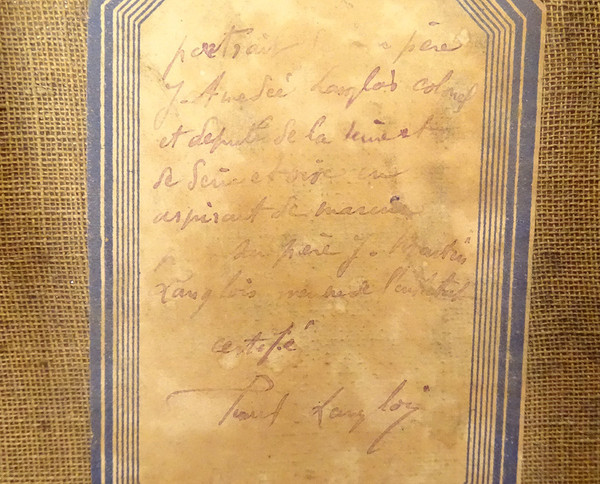 portrait père
J. Amedée Langlois colonel
et député de la Seine et
de Seine et oise en
aspirant de marine
père J. Martin
Langlois de l'
certifié
Paul Langlois